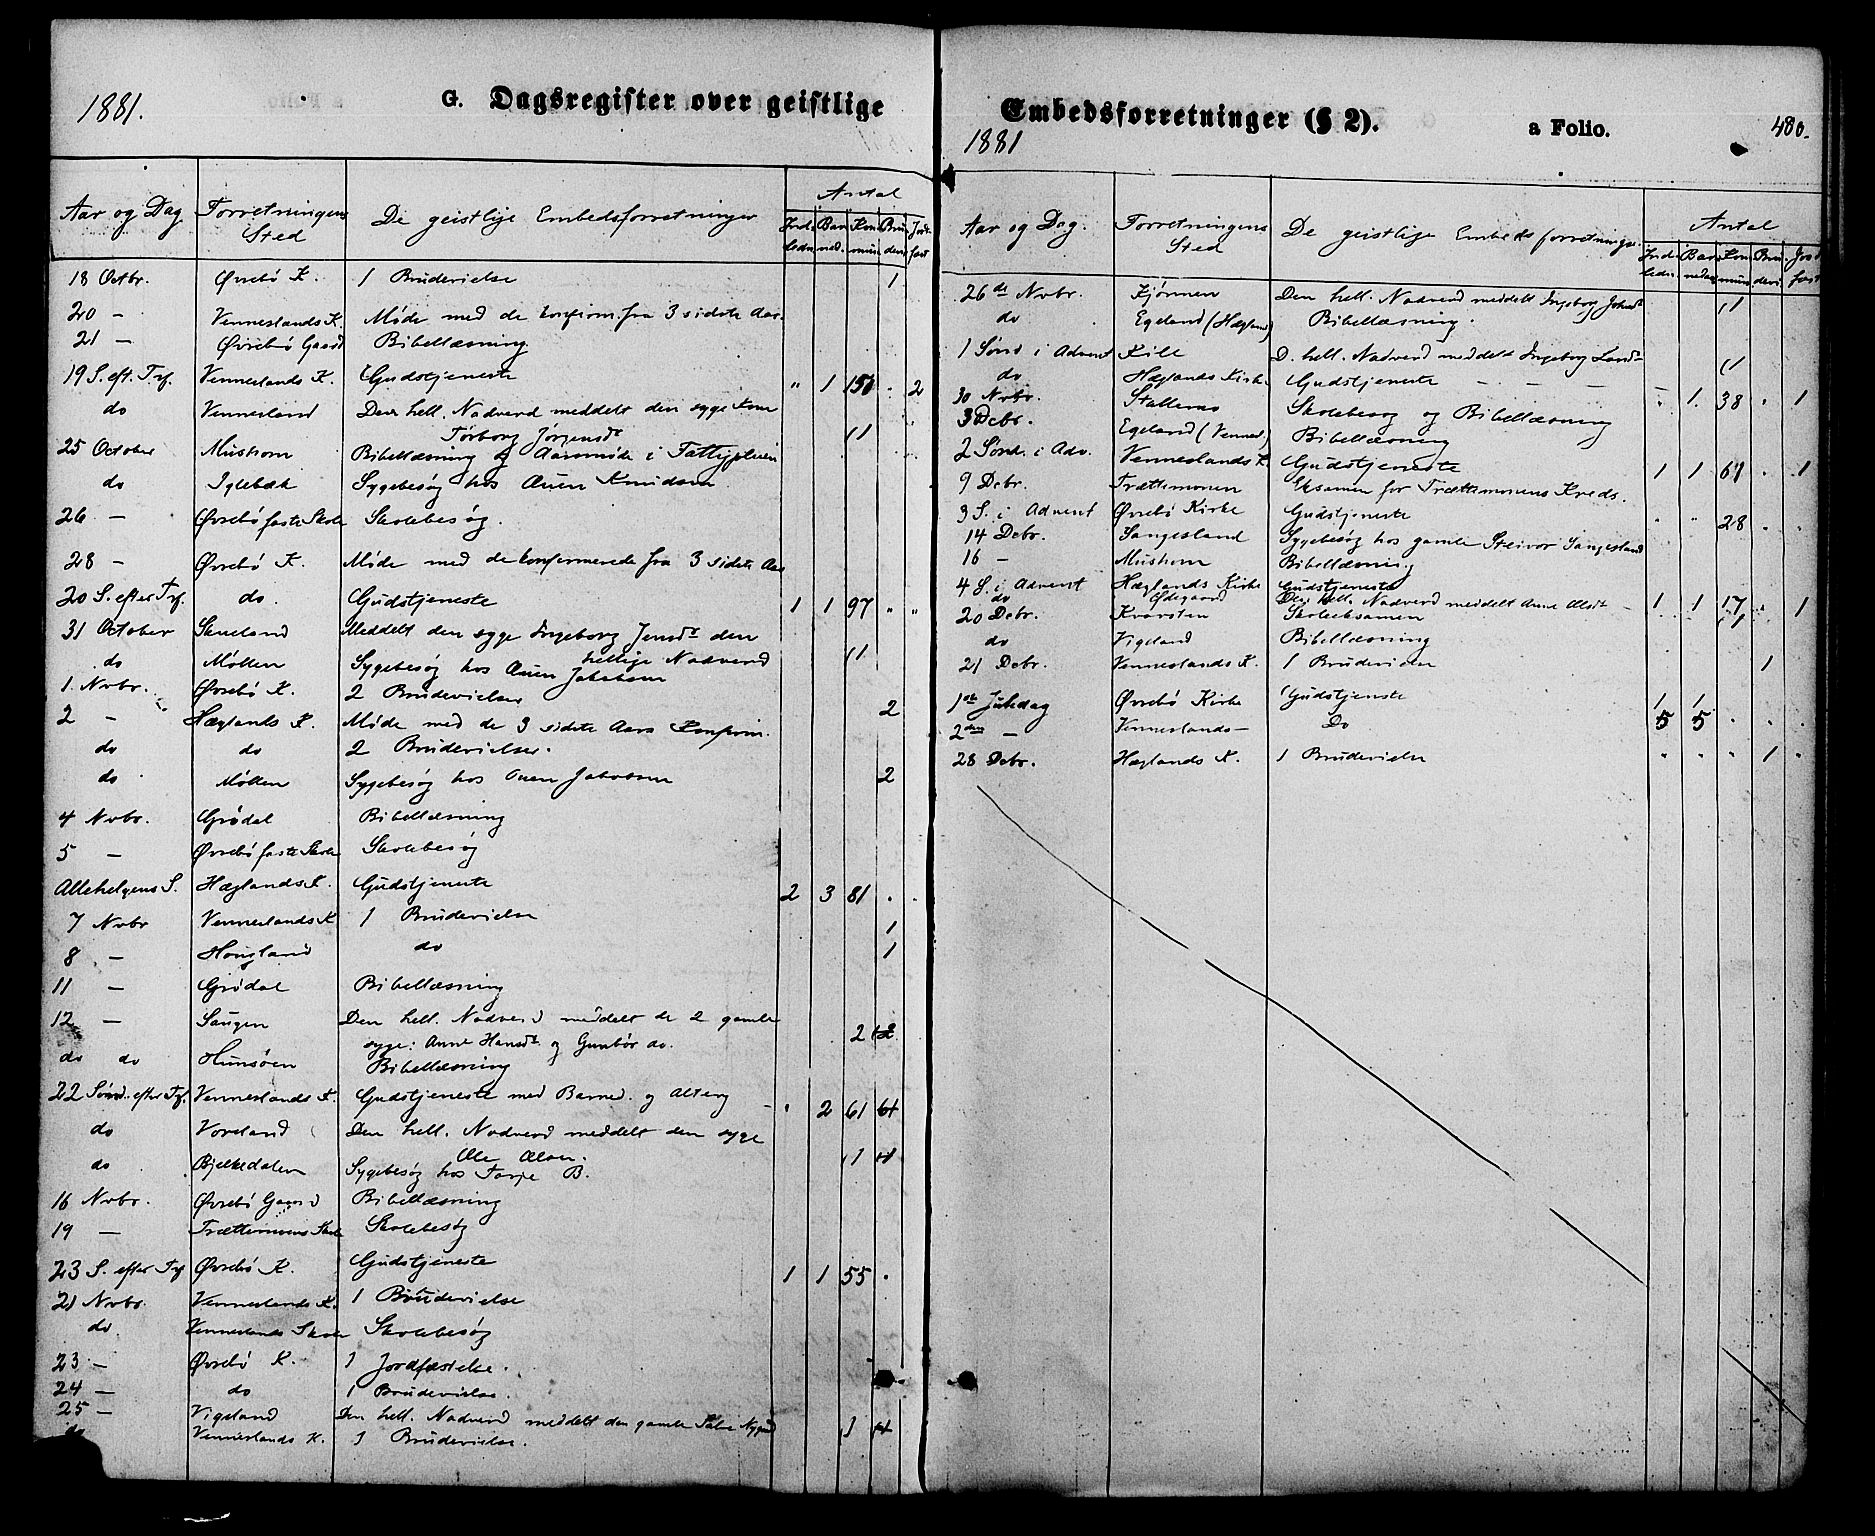 1881.
G. Dagsregister over geistlige
Aar og Dag Forretningens Sted De geistlige Embedsforretninger Antal
18 Octbr. Øvrebö K. 1 Brudevielse 1
20 - Vennerslands K. Møde med de konfirm. fra 3 sidste Aar.
21 - Øvrebö Gaard Bibellæsning
19 S. eft. Trf. Vennerslands K. Gudstjeneste " 1 150 . 2
do Vennersland Den hell. Nadverd meddelt den syge
Torborg Jørgensdt 1
25 October Mushom Bibellæsning og Aarsmøde i Fattigpleien
do Iglebæk Sygebesøg hos Auen Knudsen
26 - Øvrebö faste Skole Skolebesøg.
28 - Øvrebö K. Møde med de konfirmerede fra 3 sidste Aar
20 S. efter Trf. do. Gudstjeneste 1 1 97 " "
31 October Skueland Meddelt den syge Ingeborg Jensdt den
hellige Nadverd 1
do Mollen Sygebesøg hos Auen Jakobsen
1. Nvbr. Øvrebö K. 2 Brudevielser 2
2 - Hæglands K. Møde med de 3 sidste Aars Konfirm.
do do 2 Brudevielser. 2
do Mollen Sygebesøg hos Auen Jakobsen
4 Nvbr. Grødal Bibellæsning
5 - Øvrebö faste Skole Skolebesøg
Allehelgens S. Hæglands K. Gudstjeneste 2 3 81 . .
7 Nvbr Vennerslands K 1 Brudevielse 1
8 - Hougland do 1
11 - Grødal Bibellæsning
12 - Saugen Den hell. Nadverd meddelt de 2 gamle
syge: Anne Hansdt. og Gunbør do. 2
do do Hunsøen Bibellæsning
22 Sønd. efter Trf. Vennerslands K. Gudstjeneste med Barned. og Alterg - . 2 61
do Voreland Den hell. Nadverd meddelt den syge
Ole Olsen. 1
do Bjelkedalen Sygebesøg hos Tarje B.
16 Nvbr. Øvrebö Gaard Bibellæsning
19 - Trættemoens Skole Skolebesøg
23 S. efter Trf Øvrebö K. Gudstjeneste 1 1 55 .
21 Nvbr. Vennerslands K. 1 Brudevielse
do Vennerslands Skole Skolebesøg
23 - Øvrebö K. 1 Jordfæstelse.
24 - do 1 Brudevielse.
25 - Vigeland Den hell. Nadverd meddelt den gamle 1
Vennerslands K. 1 Brudevielse.
Embedsforretninger (§ 2).
a Folio. 480.
1881
Aar og Dag. Forretningens Sted De geistlige Embedsforretninger Antal
26de Nvbr. Kjørmen Den hell. Nadverd meddelt Ingeborg 1
do Egeland (Hægland) Bibellæsning.
1 Sønd i Advent Kile D. hell. Nadverd meddelt Ingeborg 1
do Hæglands Kirke Gudstjeneste - - - - . 1. 38 . 1
30 Nvbr. Stallemo Skolebesøg og Bibellæsning
3 Debr. Egeland (Vennes.) Bibellæsning
2 Sønd. i Adv. Vennerslands K Gudstjeneste 1 1 61 . 1
9 Debr. Trættemonen Eksamen for Trættemonens Kreds.
3 S. i Advent Øvrebö Kirke Gudstjeneste . " 28 . .
14 Debr. Sangesland Sygebesøg hos gamle Steinvor Sangesland
16 - Mushom Bibellæsning
4 S. i Advent Hæglands Kirke Gudstjeneste 1 1 17 . 1
do Ødegaard Den hell. Nadverd meddelt Anne Olsdt - 1
20 Debr. Kvarsten Skoleeksamen
do Vigeland Bibellæsning
21 Debr. Vennerslands K. 1 Brudevielse 1
1ste Juledag Øvrebö Kirke Gudstjeneste 1 1
2den - Vennerslands - Do 5 5 . . .
28 Debr. Hæglands K. 1 Brudevielse . . . 1 .